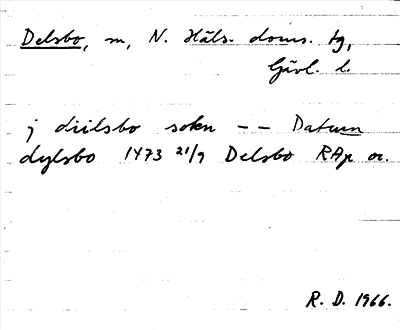 Delsbo, sn, N. Häls. doms. tg,
Gävl. l.
j diilsbo sokn -- Datum
dylsbo 1473 21/9 Delsbo RAp or.
R. D. 1966.